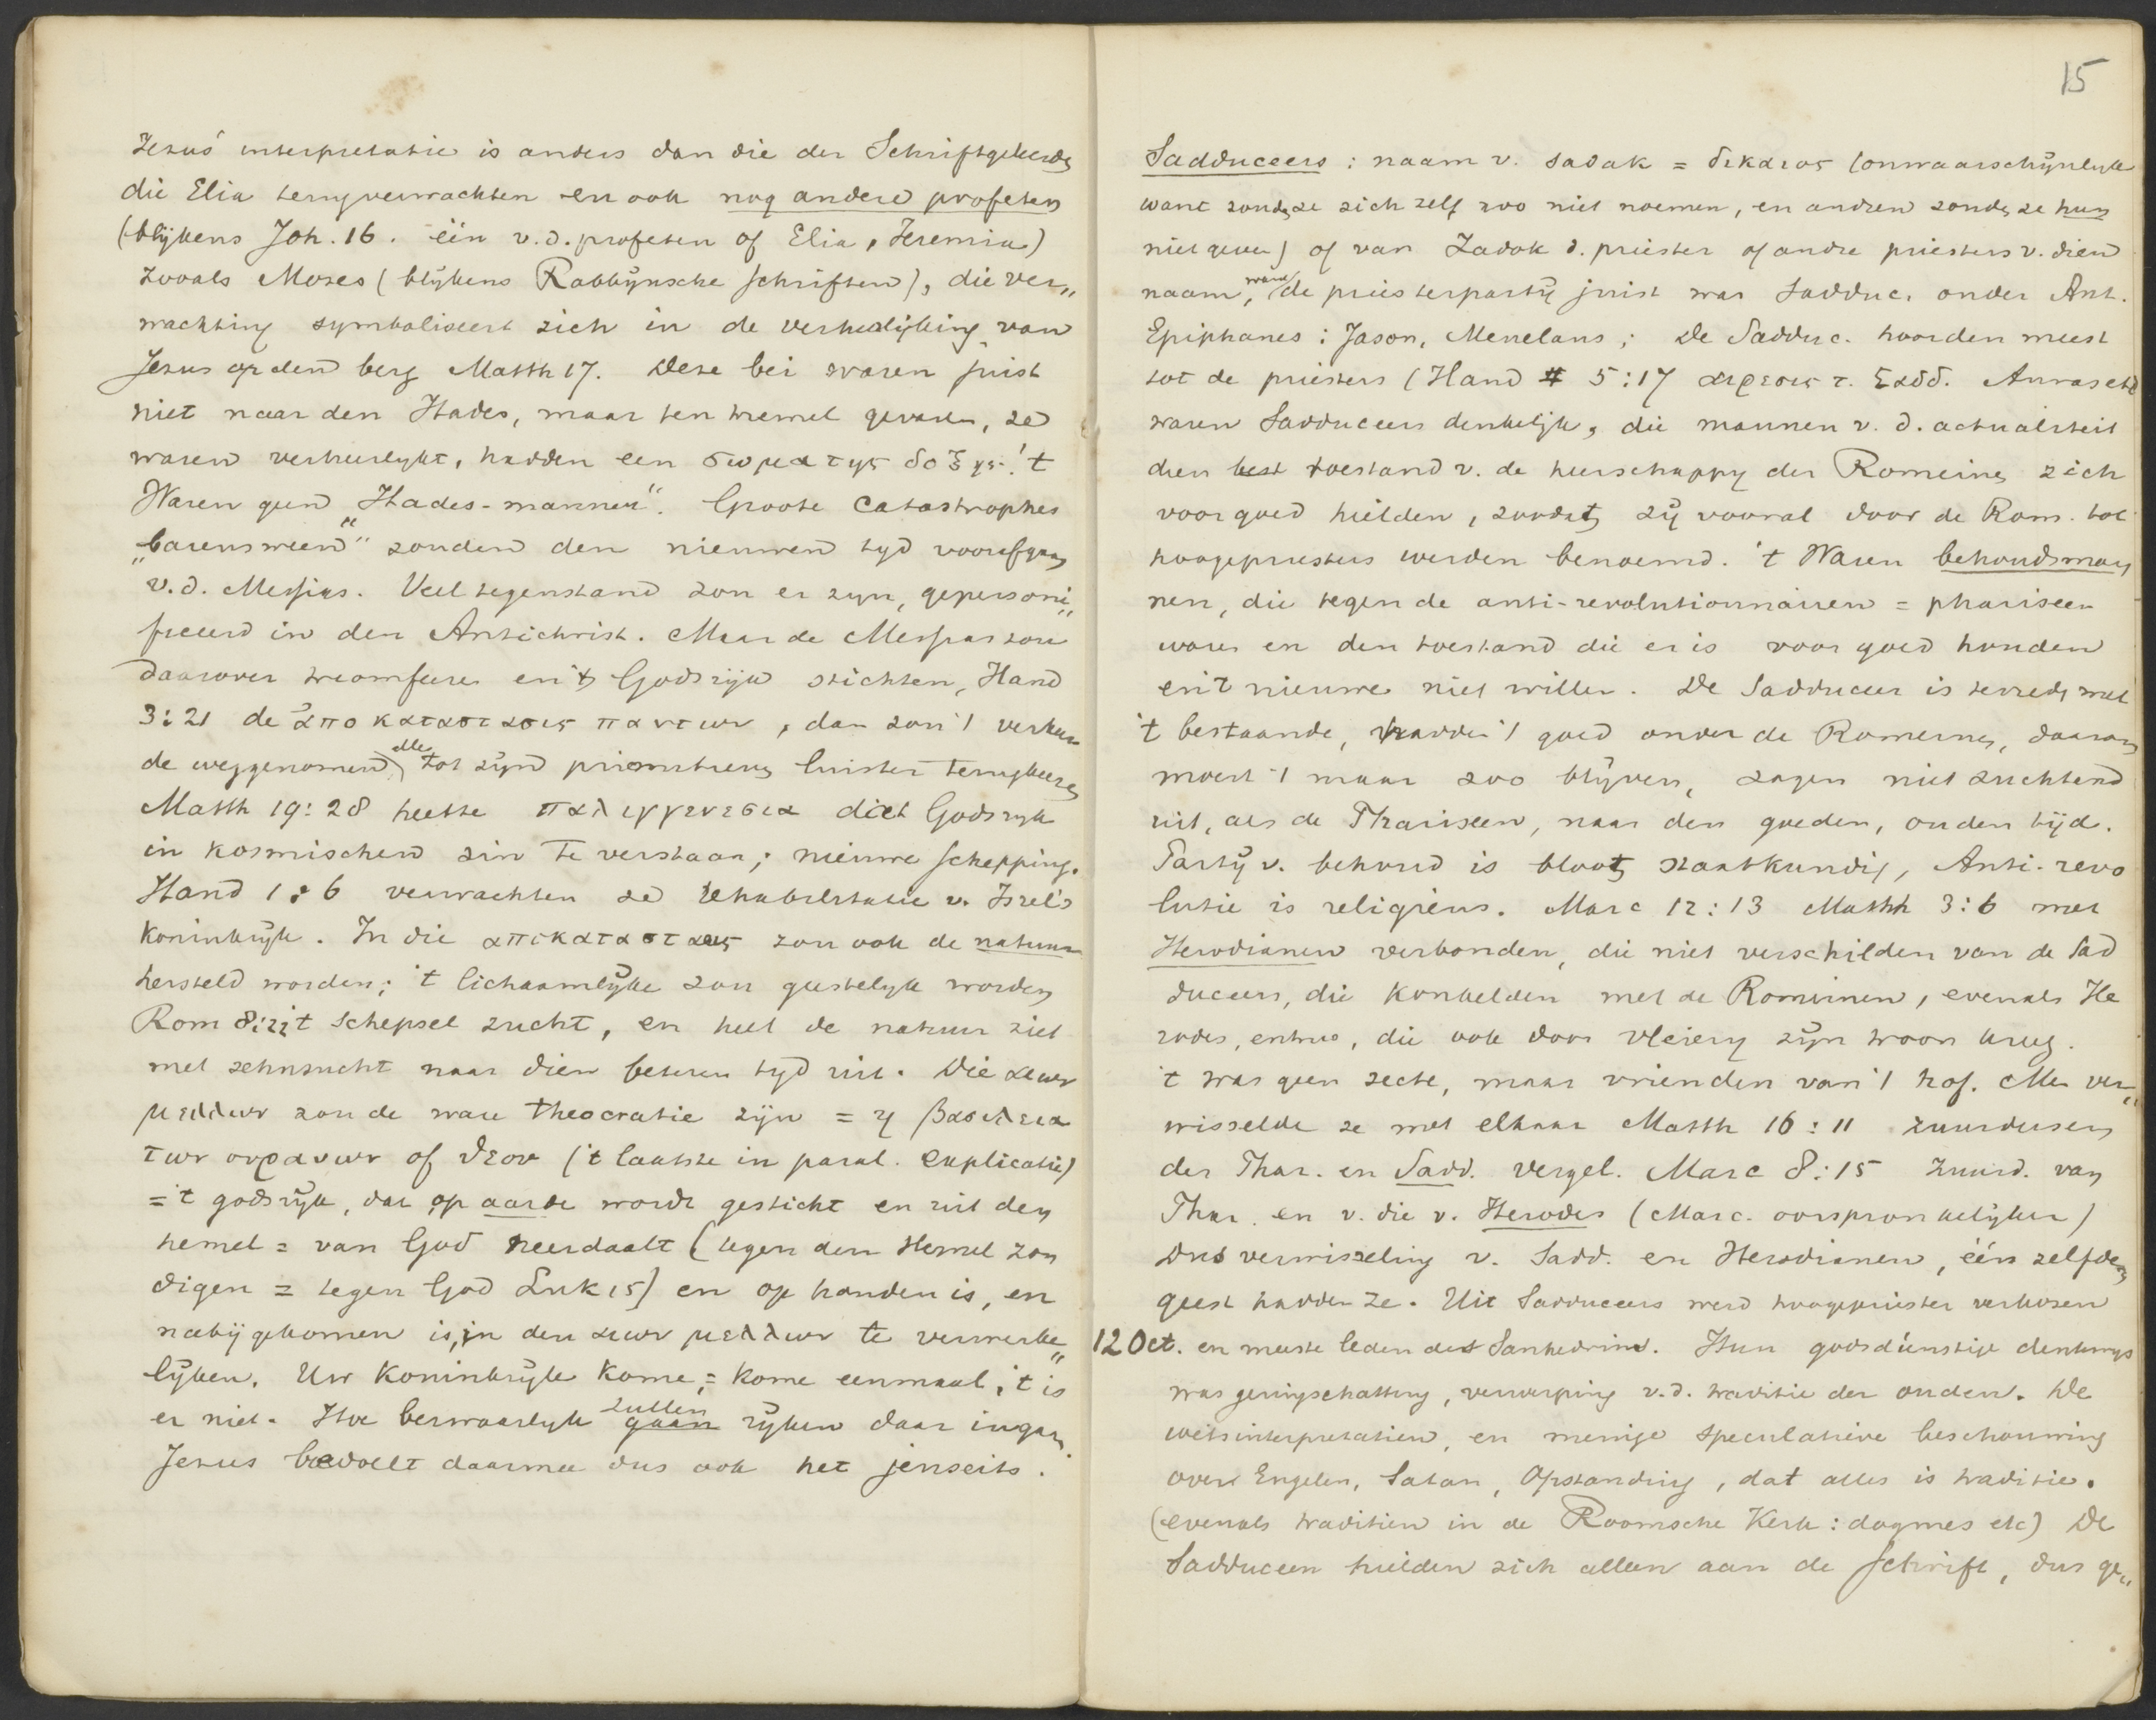 Jezus' interpretatie is anders dan die der Schriftgeleerden
die Elia terugverwachten en ook nog andere profeten
(blijkens Joh. 16. één v.d. profeten of Elia, Jeremia)
zooals Mozes (blijkens Rabbijnsche schriften), die ver„
wachting symboliseert zich in de verheerlijking van
Jezus op den berg Matth 17. Deze bei waren juist
niet naar den Hades, maar ten hemel gevaren, ze
waren verheerlykt, hadden een σωμα της δοξης. 't
Waren geen „Hades-mannen". Groote Catastrophes
„barensween" zouden den nieuwen tyd voorafgaan
v.d. Messias. Veel tegenstand zou er zyn, gepersoni„
fieerd in den Antichrist. Maar de Messias zou
daarover triomfeeren en 't Godsrijk stichten, Hand
3:21 de ἀποκαταστασις παντων, dan zou 't verkeer
de weggenomen alle tot zijn primitieven luister terugkeeren
Matth 19:28 heette παλιγγενεσια dict Godsryk
in kosmischen zin te verstaan; nieuwe schepping.
Hand 1:6 verwachten ze rehabilitatie v. Isrel's
Koninkrijk. In die αποκαταστασις zou ook de natuur
hersteld worden; 't lichaamlijke zou geestelyk worden
Rom 8:22 't schepsel zucht, en heel de natuur ziet
met zehnsucht naar dien beteren tyd uit. Die αιων
μελλων zou de ware theocratie zijn = η βασιλεια
των ουρανων of θεου ('t laatste in paral. explicatie)
= 't godsrijk, dat op aarde wordt gesticht en uit den
hemel = van God neerdaalt (tegen den Hemel zon
digen = tegen God Luk 15) en op handen is, en
nabij gekomen is, in den αιων μελλων te verwerke„
lijken. Uw Koninkrijk kome, = kome eenmaal, 't is
er niet. Hoe bezwaarlyk zullen gaan rijken daar ingaan
Jezus bedoelt daarmee dus ook het jenseits.
15
Sadduceers : naam v. sadak = δικαιος (onwaarschijnlyk
want zouden ze zich zelf zoo niet noemen, en andren zouden ze hun
niet geven) of van Zadok d. priester of andre priesters v. dien
naam, want de priesterpartij juist was Sadduc. onder Ant.
Epiphanes : Jason, Menelaus; De Sadduc. hoorden meest
tot de priesters (Hand # 5:17 αιρεσις τ. Σαδδ. Annas etc
waren Sadduceers denkelijk, die mannen v. d. actualiteit
dien best toestand v. de heerschappy der Romeinen zich
voorgoed hielden, zoodat zij vooral door de Rom. tot
hoogepriesters werden benoemd. 't Waren behoudsman
nen, die tegen de anti-revolutionnairen = phariseen
waren en den toestand die er is voor goed houden
en 't nieuwe niet willen. De Sadduceer is tevreden met
't bestaande, hadden 't goed onder de Romeinen, daarom
moest 't maar zoo blijven, zagen niet zuchtend
uit, als de Phariseen, naar den goeden, ouden tijd.
Partij v. behoud is bloot staatkundig, Anti-revo
lutie is religieus. Marc 12:13 Matth 3:6 met
Herodianen verbonden, die niet verschilden van de Sad
duceers, die konkelden met de Romeinen, evenals He
rodes, , die ook door vleierij zijn troon kreeg.
't was geen secte, maar vrienden van 't hof. Men ver„
wisselde ze met elkaar Matth 16:11 zuurdeesem
der Phar. en Sadd. vergel. Marc 8:15 zuurd. van
Phar. en v. die v. Herodes (Marc. oorspronkelijker)
Dus verwisseling v. Sadd. en Herodianen, één zelfden
geest hadden ze. Uit Sadduceers werd hoogepriester verkozen
12 Oct. en meeste leden des Sanhedrins. Hun godsdienstige denkwijs
was geringschatting, verwerping v.d. traditie der ouden. De
wetsinterpretatien, en menige speculatieve beschouwing
over Engelen, Satan, Opstanding, dat alles is traditie.
(evenals traditien in de Roomsche Kerk: dogmes etc) De
Sadduceen hielden zich alleen aan de Schrift, dus ge„